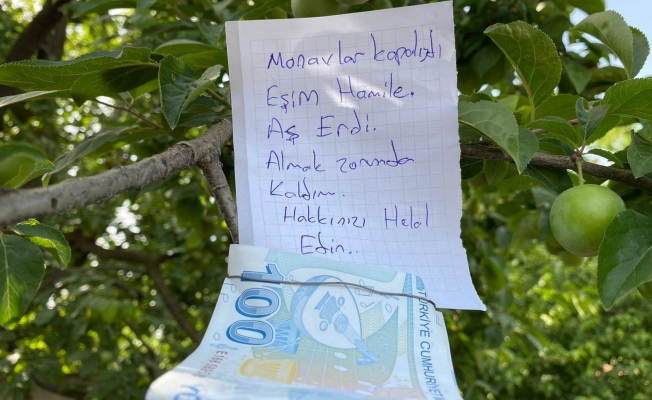 Manavlar kapalıydı
Eşim Hamile.
Aş Erdi.
Almak zorunda
Kaldım.
Hakkınızı Helal
Edin..
100
TÜRKİYE CUMHURİYE